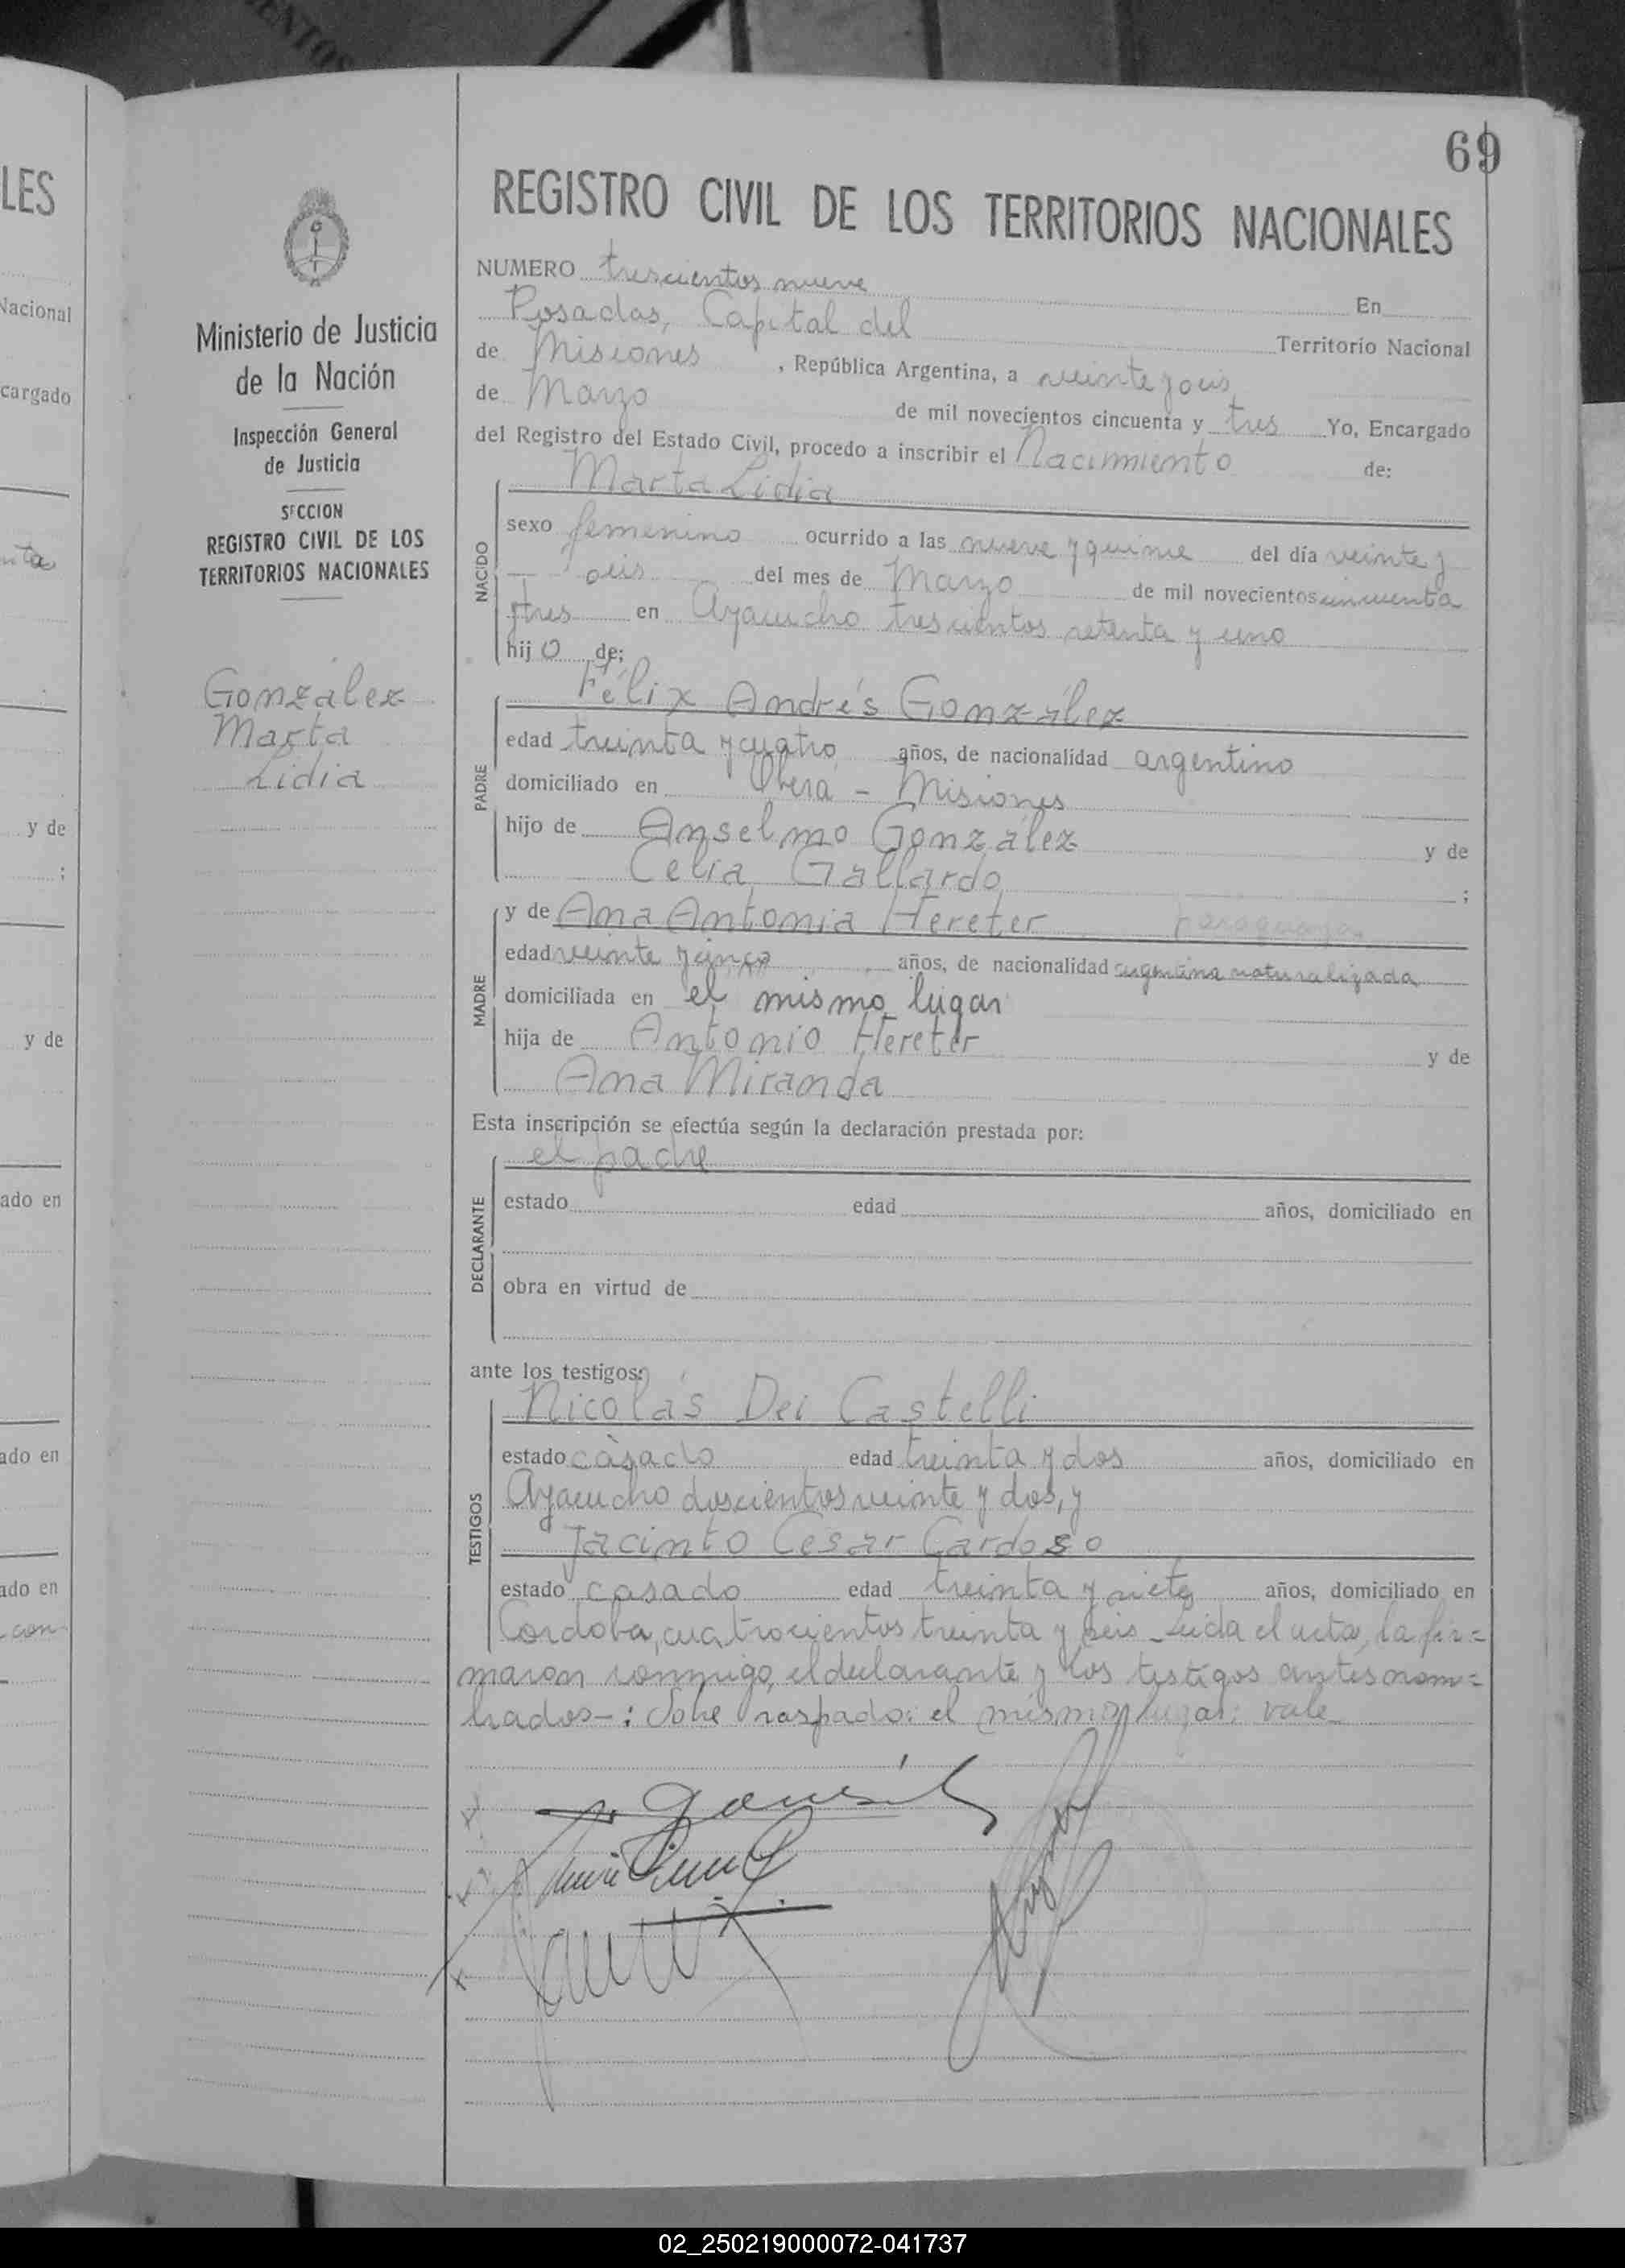 69
LES
REGISTRO CIVIL DE LOS TERRITORIOS NACIONALES
NUMERO trescientos nueve En
Posadas, Capital del Territorio Nacional
de Misiones, República Argentina, a veinte y seis
de Marzo de mil novecientos cincuenta y tres Yo, Encargado
del Registro del Estado Civil, procedo a inscribir el Nacimiento de:
Marta Lidia
sexo femenino ocurrido a las nueve y quince del día veinte y
seis del mes de Marzo de mil novecientos cincuenta
y tres en Ayacucho trescientos setenta y uno
hij o de;
NACIDO
Félix Andrés González
edad treinta y cuatro años, de nacionalidad argentino
domiciliado en Oberá - Misiones
hijo de Anselmo González y de
Celia Gallardo ;
PADRE
y de Ana Antonia Hereter paraguaya
edad veinte y cinco años, de nacionalidad argentina naturalizada
domiciliada en el mismo lugar
hija de Antonio Hereter y de
Ana Miranda
MADRE
Esta inscripción se efectúa según la declaración prestada por:
el padre
estado edad años, domiciliado en
obra en virtud de
DECLARANTE
ante los testigos:
Nicolás Dei Castelli
estado casado edad treinta y dos años, domiciliado en
Ayacucho doscientos veinte y dos, y
Jacinto Cesar Cardoso
estado casado edad treinta y siete años, domiciliado en
Cordoba, cuatrocientos treinta y seis - Leida el acta, la fir=
TESTIGOS
maron conmigo, el declarante y los testigos antes nom=
brados-: Sobre raspado: el mismo lugar: vale
Ministerio de Justicia
de la Nación
Inspección General
de Justicia
SECCION
REGISTRO CIVIL DE LOS
TERRITORIOS NACIONALES
González
Marta
Lidia
Nacional
cargado
y de
;
y de
ado en
ado en
ado en
con
02_250219000072-041737